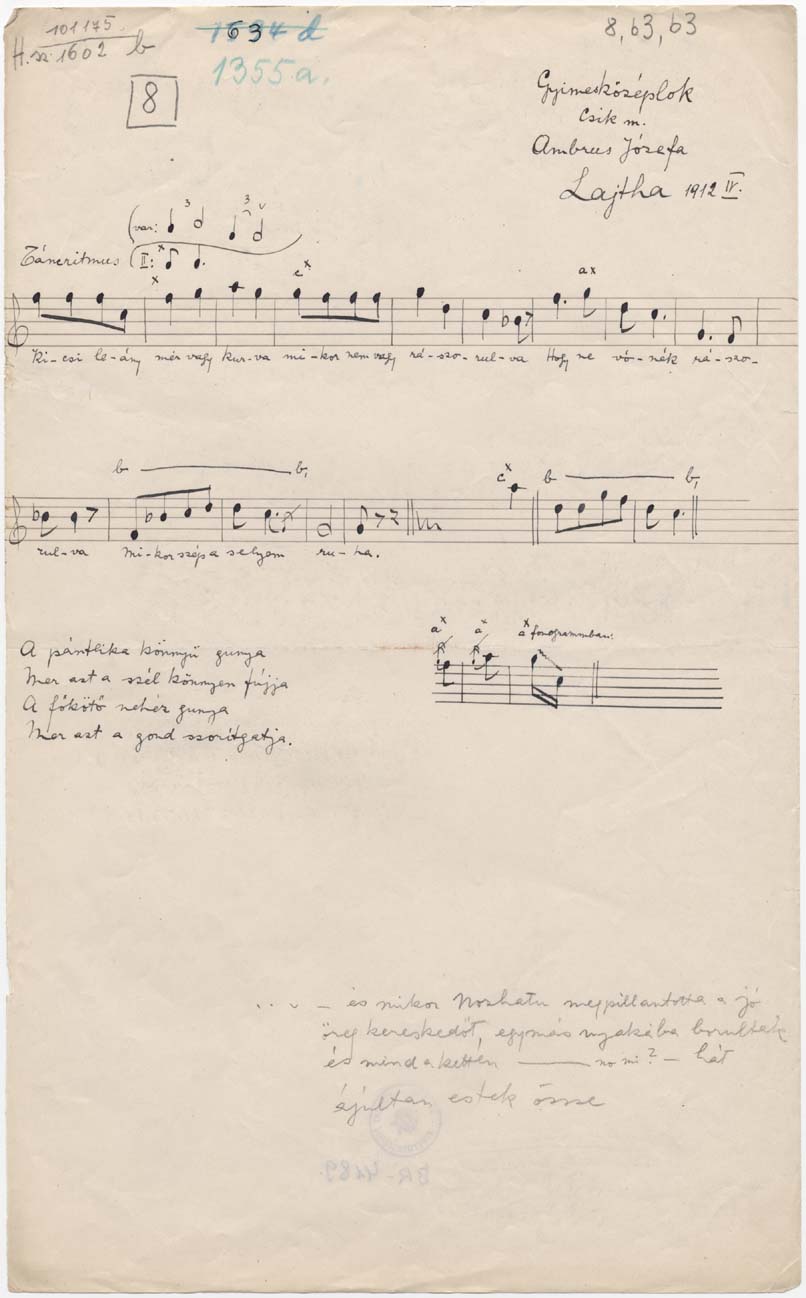 101175.
H. sz. 1602 b
1355.a.
8, 63, 63
8
Gyimesközéplok
Csik m.
Ambrus Józefa
Lajtha 1912 IV.
(var: 3 3
Táncritmus (II:
x x
c x a x
Ki-csi le-ány mér vagy kur-va mi-kor nem vagy rá-szo-rul-va Hogy ne vó-nék rá-szo-
b b, c x b b,
rul-va Mi-kor szép a selyem ru-ha.
a x a x a x fonogrammban:
A pántlika könnyű gunya
Mer azt a szél könnyen fújja
A főkötő nehéz gunya
Mer azt a gond szorítgatja.
és mikor Nozhatu megpillantotta a jó
öreg kereskedőt, egymás nyakába borultak
és mind a ketten — no mi? — hát
ájultan estek össze
BR-4489